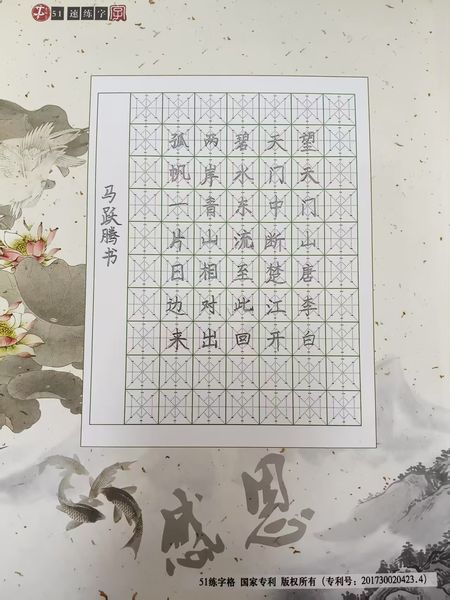 51速练字
望天门山唐李白
天门中断楚江开
碧水东流至此回
两岸青山相对出
孤帆一片日边来
马跃腾书
感恩
51练字格 国家专利 版权所有（专利号：201730020423.4）